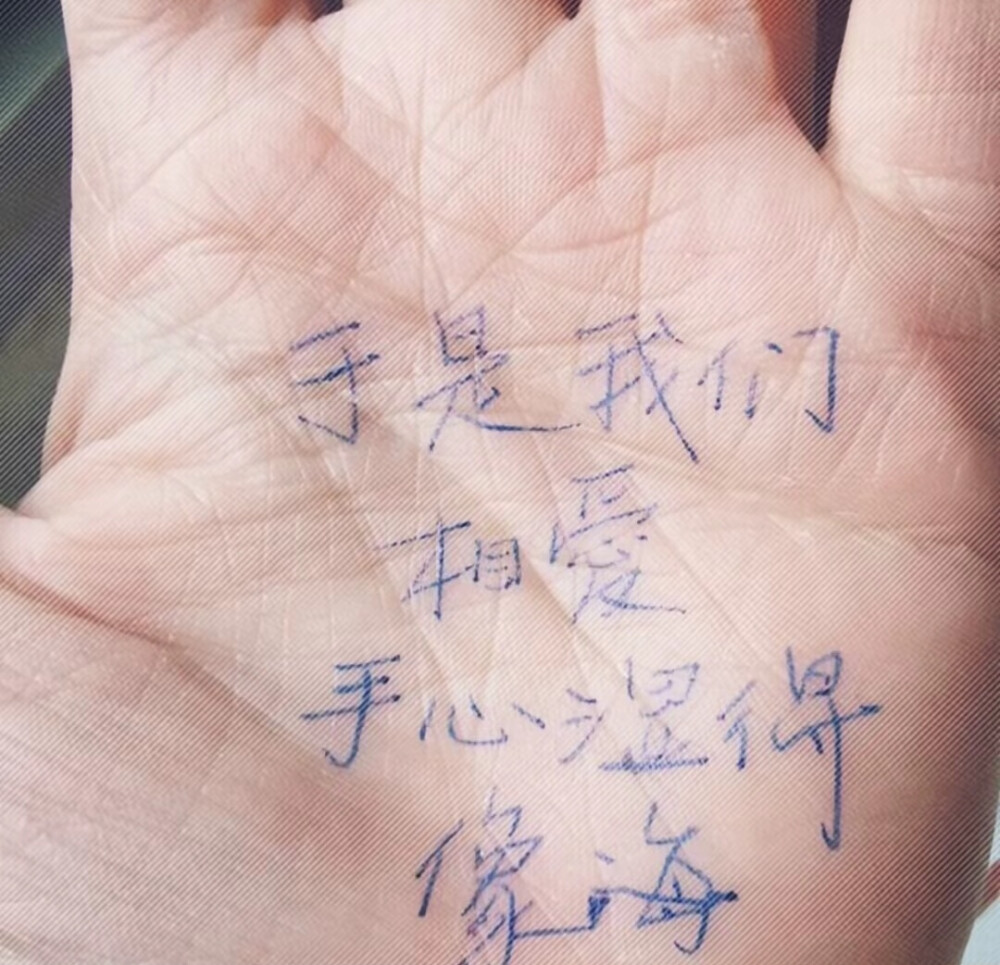 于是我们
相爱
手心湿得
像海